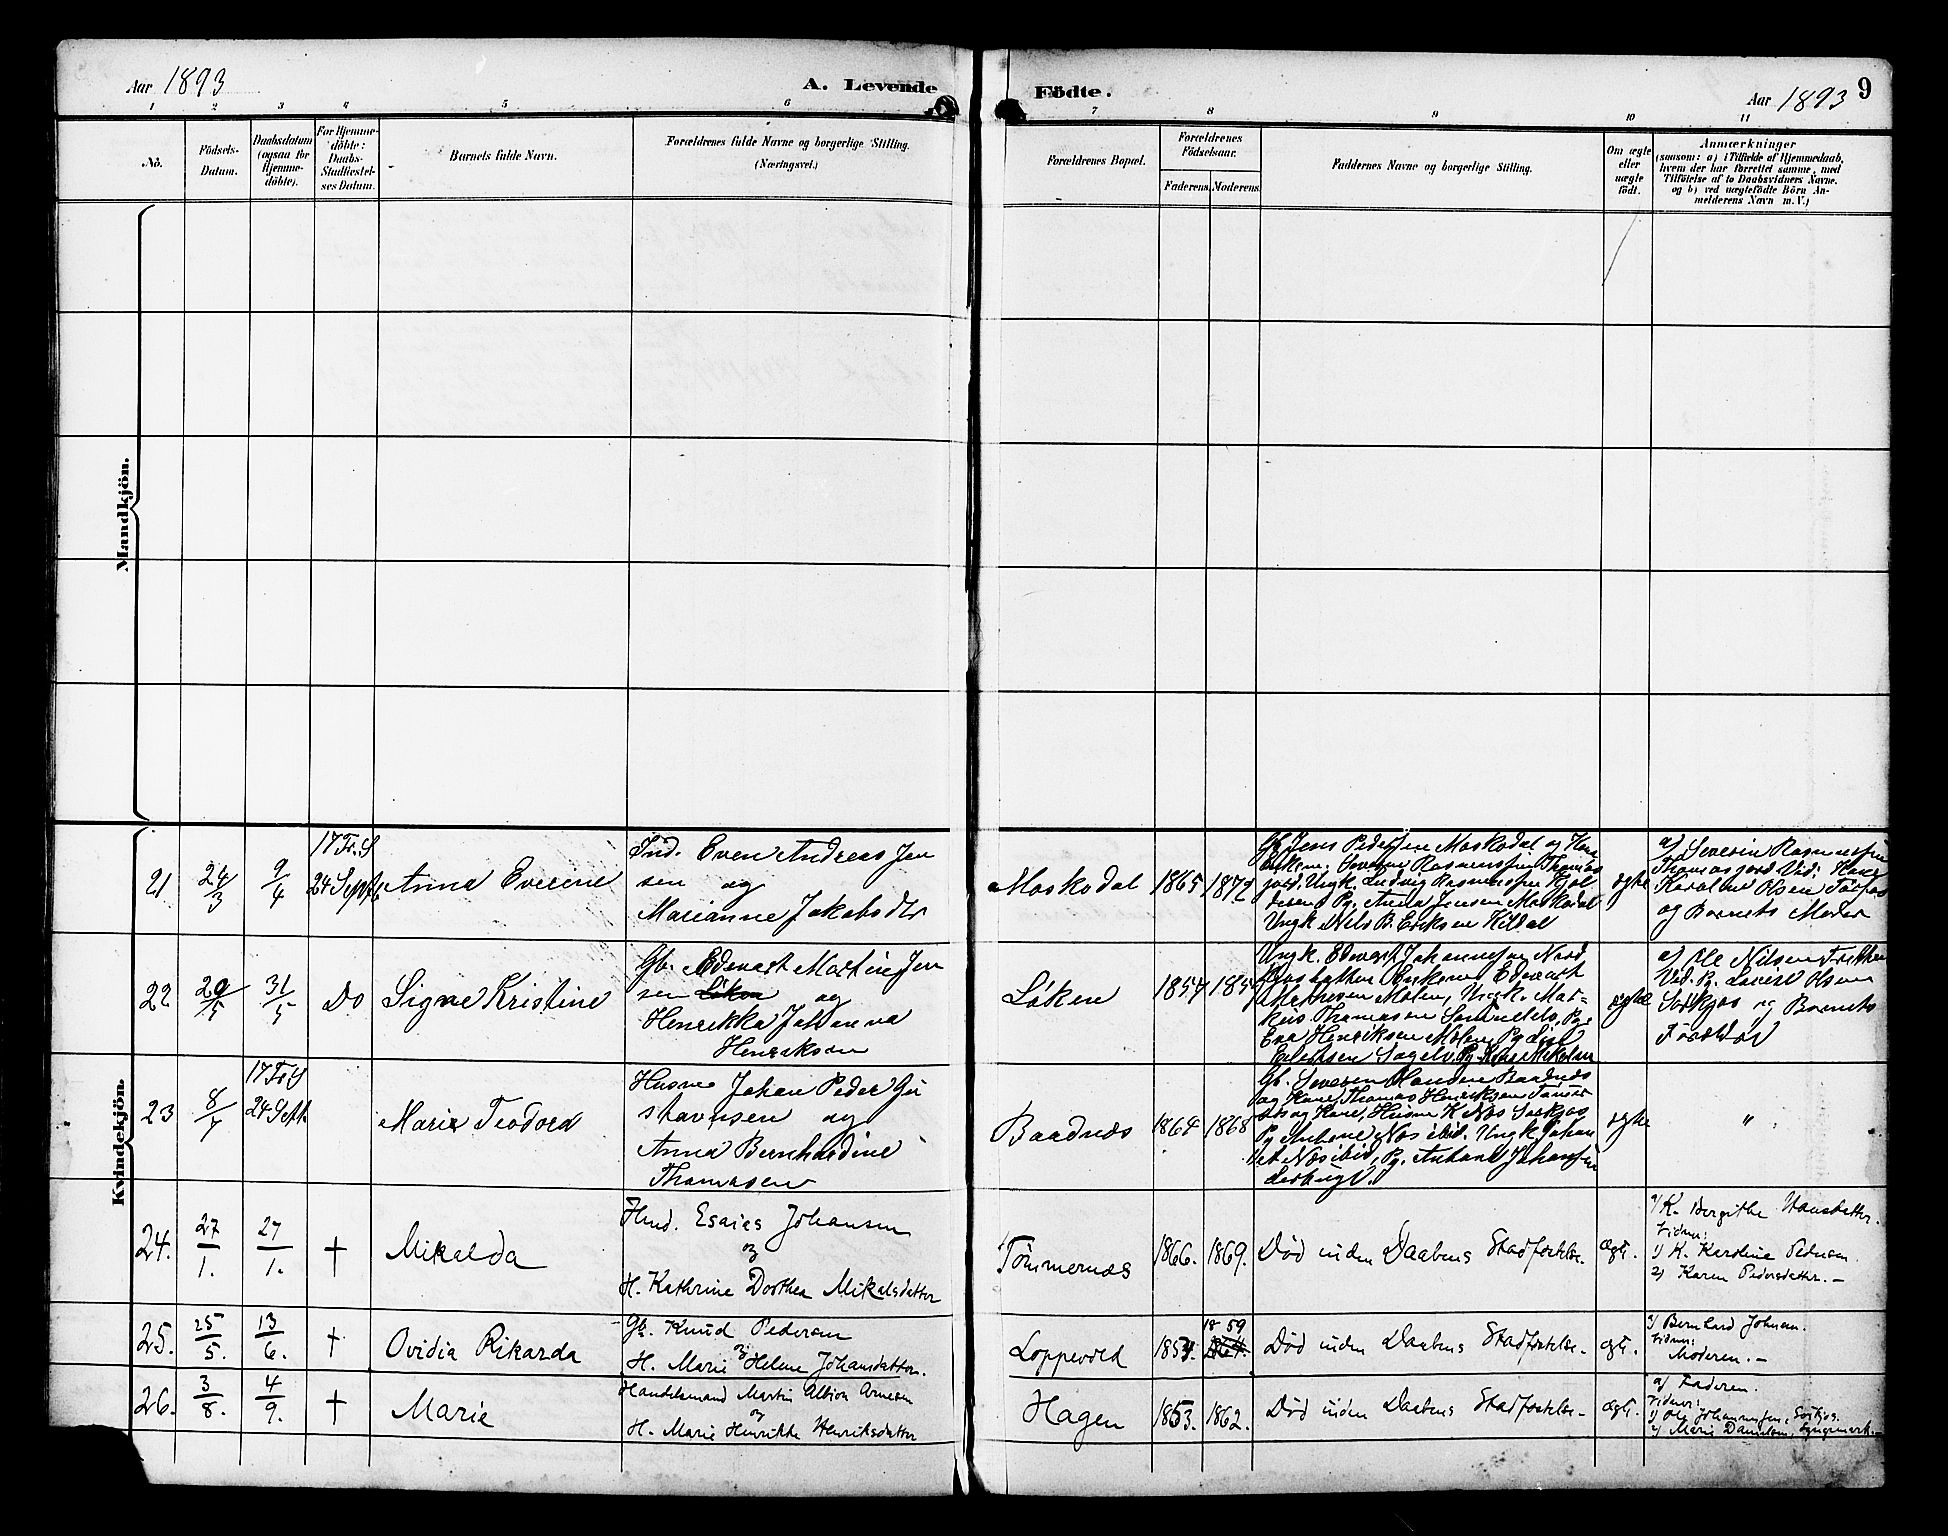 Aar 1893
A. Levende
Födte.
Aar 1893
9
1 2 3 4 5 6 7 8 9 10 11
No.
Födsels-
Datum.
Daabsdatum
(ogsaa for
Hjemme-
döbte).
For Hjemme-
döbte:
Daabs-
Stadfæstel-
ses Datum.
Barnets fulde Navn.
Forældrenes fulde Navne og borgerlige Stilling.
(Næringsvei.)
Forældrenes Bopæl.
Forældrenes
Födselsaar.
Faderens.
Moderens.
Faddernes Navne og borgerlige Stilling.
Om ægte
eller
uægte
födt.
Anmærkninger
(saasom: a) i Tilfælde af Hjemmedaab,
hvem der har forrettet samme, med
Tilföielse af to Daabsvidners Navne.
og b) ved uægtefödte Börn An-
melderens Navn m. V.)
Mandkjön.
Kvindekjön.
21
24/3
9/4
17 Tr. S
24 Septb
Anna Everine
Ind. Even Andreas Jen
sen og
Marianne Jakobsdtr
Moskodal
1865
1872
Gb. Jens Pedersen Moskodal og Kone
Severine Rasmussen Thomas
jord, Ungk. Ludvig Rasmussen
Pg. Anna Jensen Moskodal
Ungk Nils B. Eriksen Kildal
ægte
a) Severin Rasmussen
Thomasjord Vid: Kone
Karoline Olsen
og Barnets Moder
22
20/5
31/5
Do
Signe Kristine
Gb. Edevart Martin Jen
sen Løken og
Henrikka Johanna
Henriksen
Løken
1854
185
Ungk. Edevart Johannesen Nord
Edevart
Molen, Ungk. Mar-
kus Thomasen Pg.
Eva Henriksen Molen Pg
Eilertsen Pg. Mikalsen
ægte
a) Ole Nilsen
Vid. Pg. Lovise Olsen
Sørkjos og Barnets
Forældre
23
8/7
17 Tr. S
24 Sept.
Marie Teodora
Husm Johan Peder Gu
stavsen og
Anna Bernhardine
Thomasen
Baadnæs
1864
1868
Gb. Severin Hansen Baadnæs
og Kone, Thomas Henriksen
og Kone, Husm K Næs Sørkjos
Pg Antone Næs ibid. Ungk Johan
Næs ibid, Pg. Antone Johansen
ægte
"
24.
27/1.
27/1.
†
Mikalda
Ind. Esaias Johansen
og
H. Kathrine Dorthea Mikalsdatter
Tömmernæs
1866.
1869.
Død inden Daabens Stadfæstelse.
ægte.
K. Bergithe Hansdatter.
Vidner:
1) K. Karoline Pedersen
2) Karen Pedersdatter. —
25.
25/5.
13/6.
†
Ovidia Rikarda
Gb. Knud Pedersen
og
H. Marie Helene Johansdatter.
Loppevold
185
18 59
Død inden Daabens Stadfæstelse.
ægte.
Bernhard Johnsen.
Vidner:
Moderen. —
26.
3/8.
4/9.
†
Marie
Handelsmand Martin Albion Arnesen
og
H. Marie Henrikke Henriksdatter
Hagen
1853.
1862.
Død inden Daabens Stadfæstelse.
ægte.
a) Faderen.
Vidner:
1) Ole Johannessen, Sørkjos.
2) Marie Danielsen,